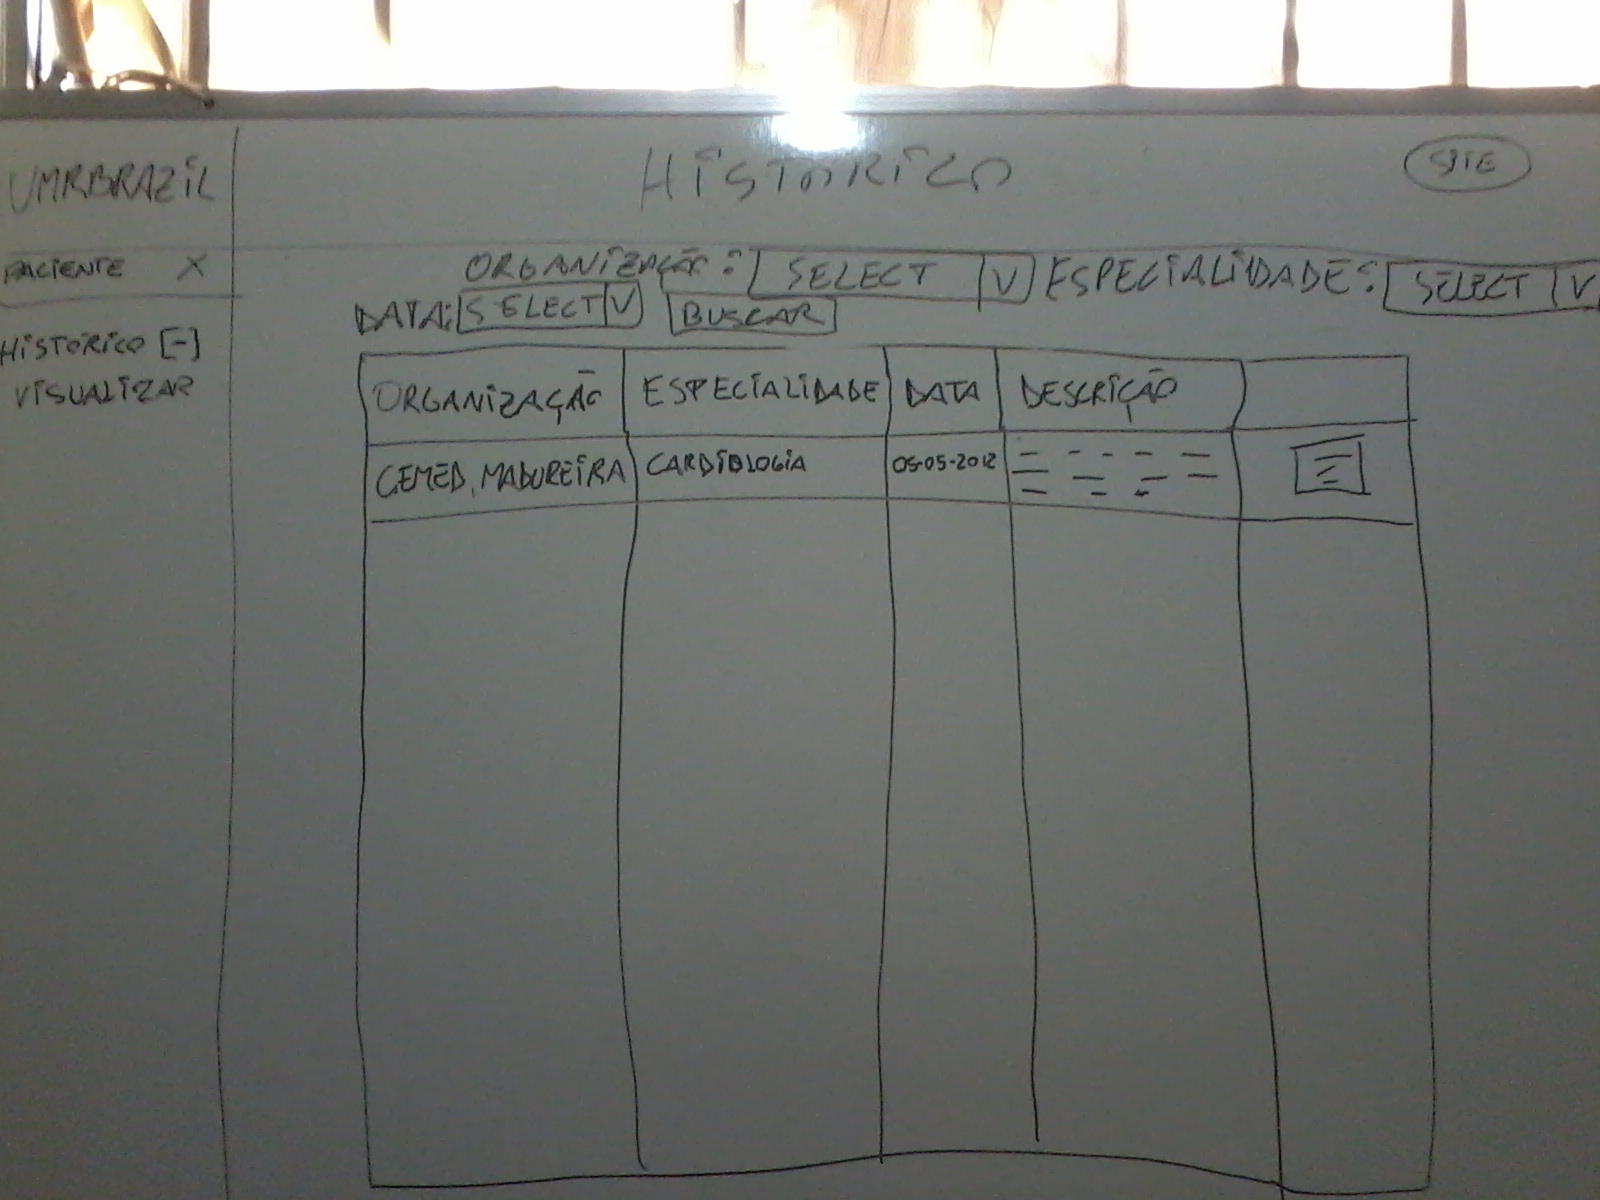 UMRBRAZIL
HISTÓRICO
SITE
PACIENTE X
HISTÓRICO [-]
VISUALIZAR
ORGANIZAÇÃO: SELECT V ESPECIALIDADE: SELECT V
DATA: SELECT V BUSCAR
ORGANIZAÇÃO ESPECIALIDADE DATA DESCRIÇÃO
CEMED, MADUREIRA CARDIOLOGIA 05-05-2012